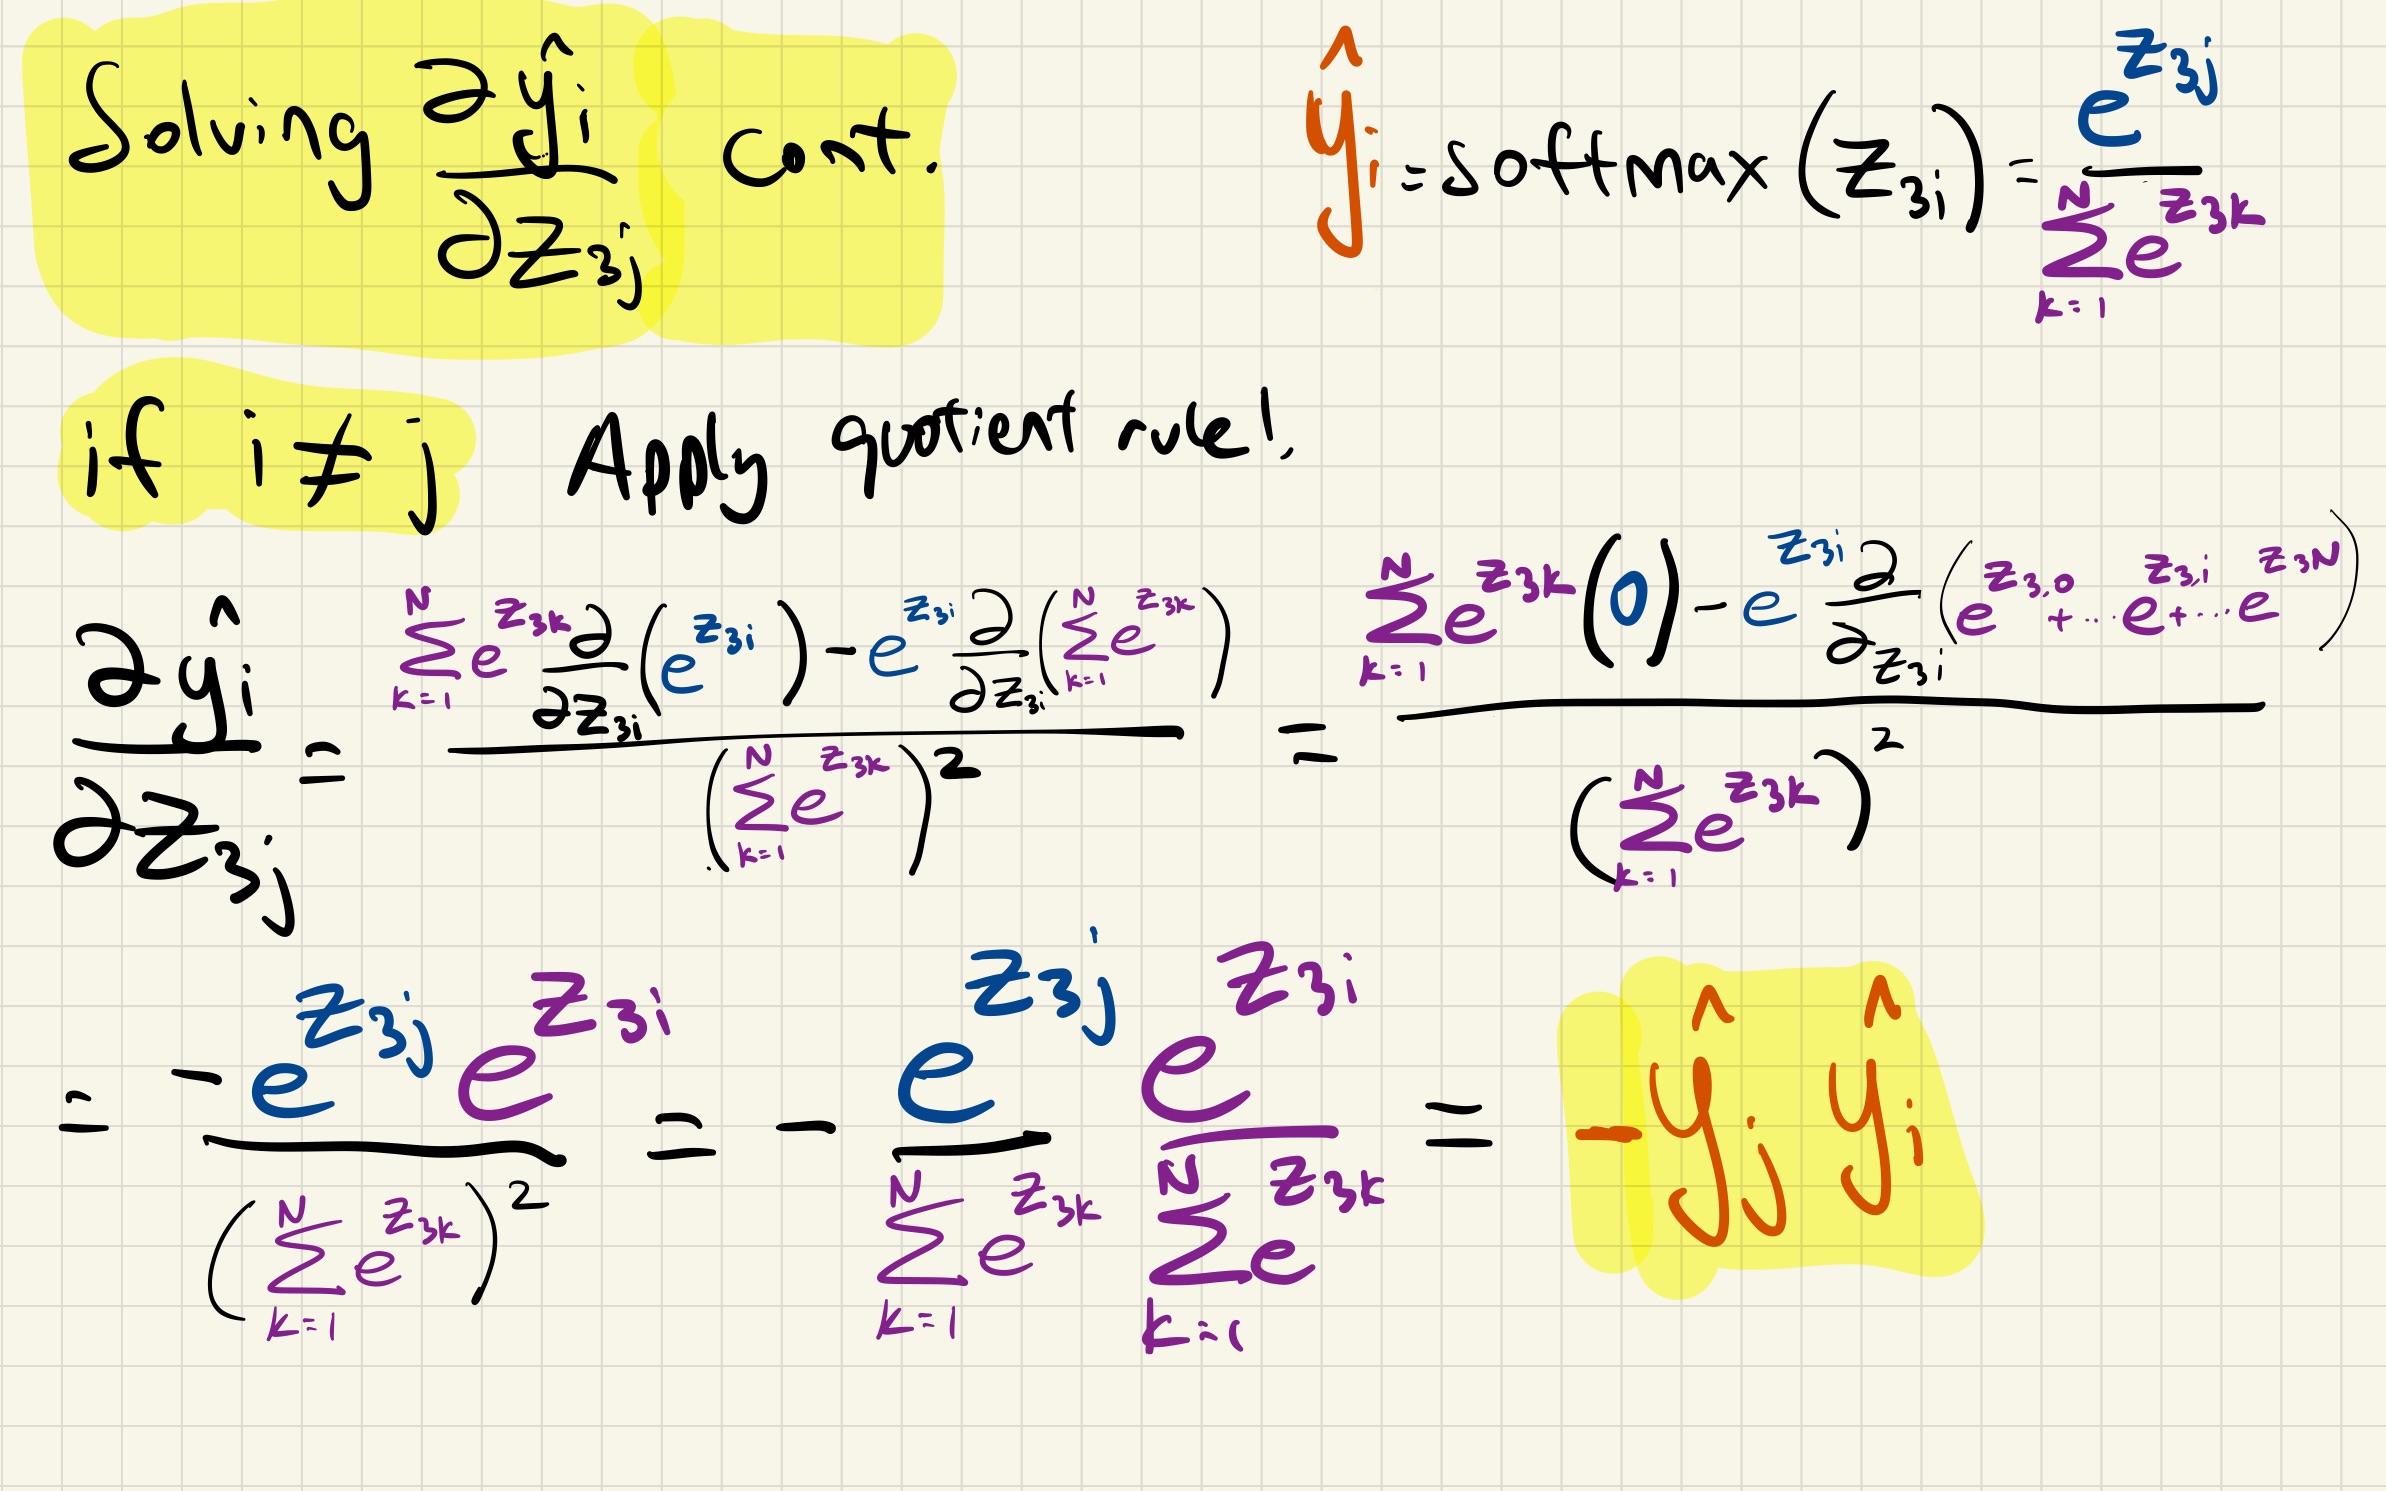 Solving ∂ŷi/∂z3j cont.
ŷi = softmax(z3i) = e^(z3j) / Σ_(k=1)^N e^(z3k)
if i ≠ j Apply quotient rule!,
∂ŷi/∂z3j = [Σ_(k=1)^N e^(z3k) ∂/∂z3i (e^(z3i)) - e^(z3i) ∂/∂z3i (Σ_(k=1)^N e^(z3k))] / (Σ_(k=1)^N e^(z3k))^2 = [Σ_(k=1)^N e^(z3k) (0) - e^(z3i) ∂/∂z3i (e^(z3,0) + ··· e^(z3,i) + ··· e^(z3N))] / (Σ_(k=1)^N e^(z3k))^2
= -e^(z3j) e^(z3i) / (Σ_(k=1)^N e^(z3k))^2 = - e^(z3j) / Σ_(k=1)^N e^(z3k) e^(z3i) / Σ_(k=1)^N e^(z3k) = -ŷj ŷi